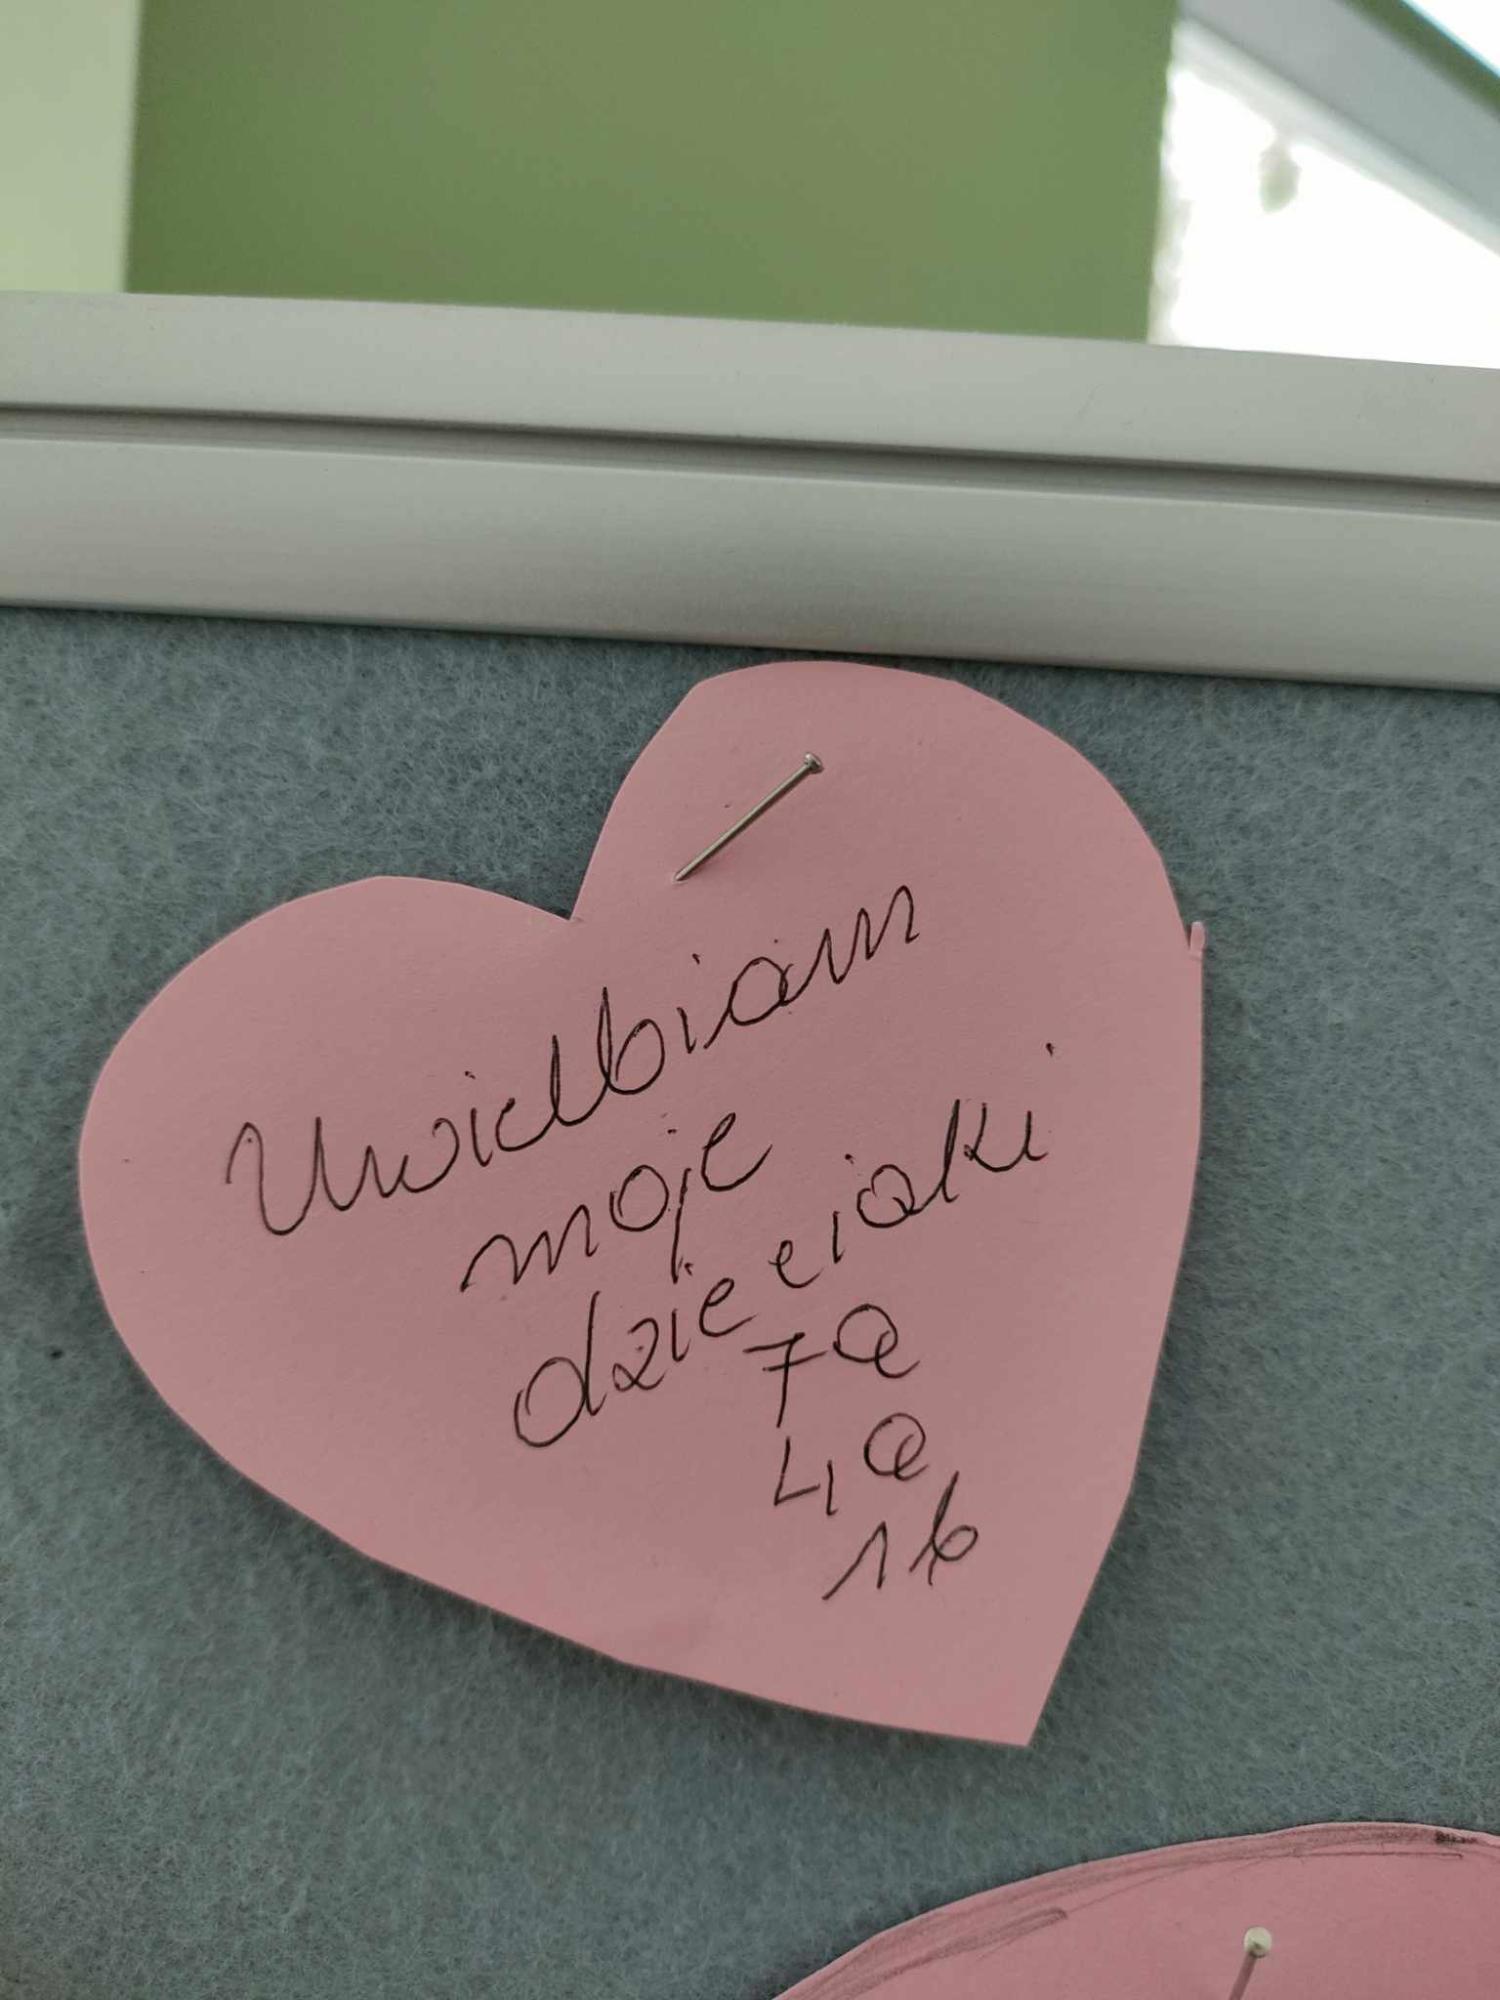 Uwielbiam
moje
dzieciaki
7a
4a
1b